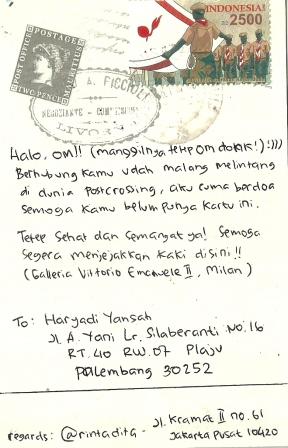 POST OFFICE
POSTAGE
MAURITIUS
TWO PENCE
INDONESIA
2500
A. PICCIOLI
NEGOZIANTE - COM
LIVO
Halo, om!! (manggilnya tetep om dokik!) :)))
Berhubung kamu udah malang melintang
di dunia postcrossing, aku cuma berdoa
semoga kamu belum punya kartu ini.
Tetep sehat dan semangat ya! Semoga
segera menjejakkan kaki disini!!
(Galleria Vittorio Emanuele II, Milan)
To: Haryadi Yansah
Jl. A. Yani Lr. Silaberanti No.16
RT.40 RW.07 Plaju
Palembang 30252
regards: @rintadita - Jl. Kramat II no. 61
Jakarta Pusat 10420